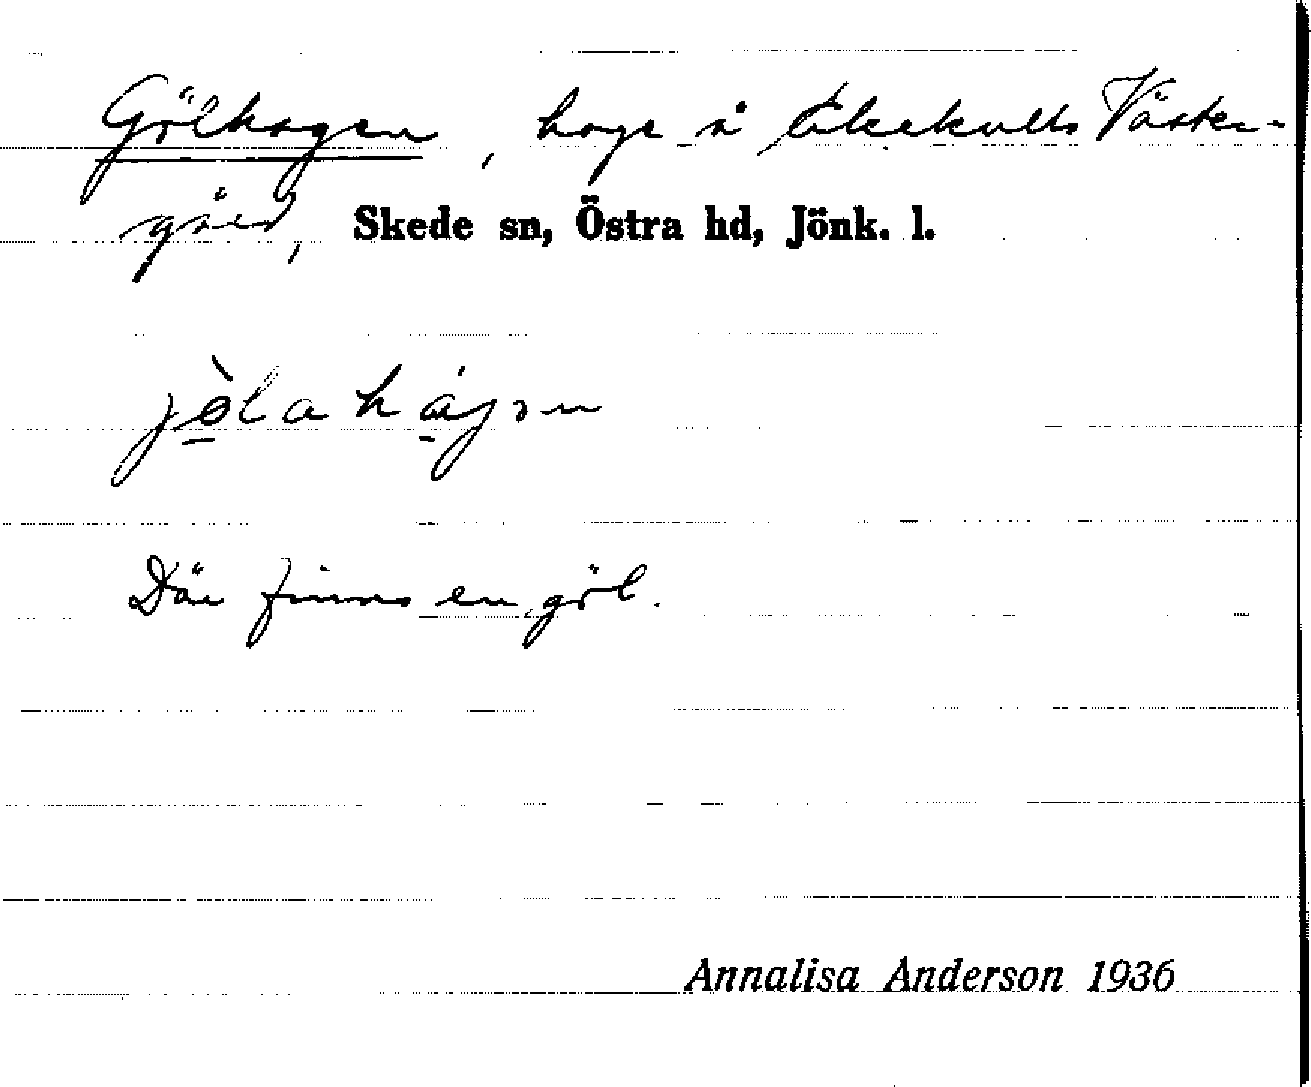 Gölhagen, hage å Ekekulls Väster-
gård, Skede sn, Östra hd, Jönk. l.
Där finns en göl.
Annalisa Anderson 1936